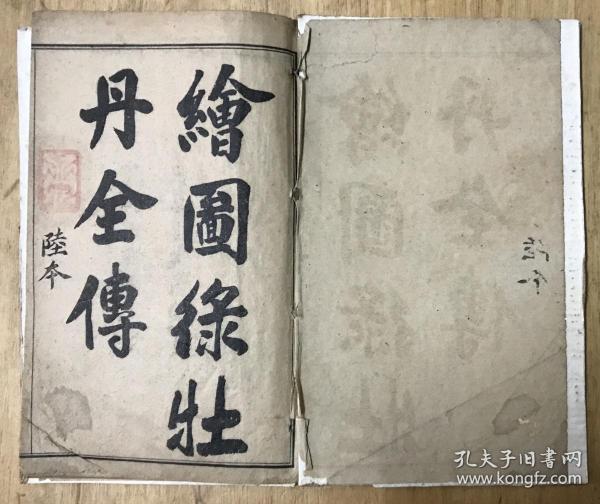 繪圖綠牡
丹全傳
陸本
孔夫子旧书网
www.kongfz.com